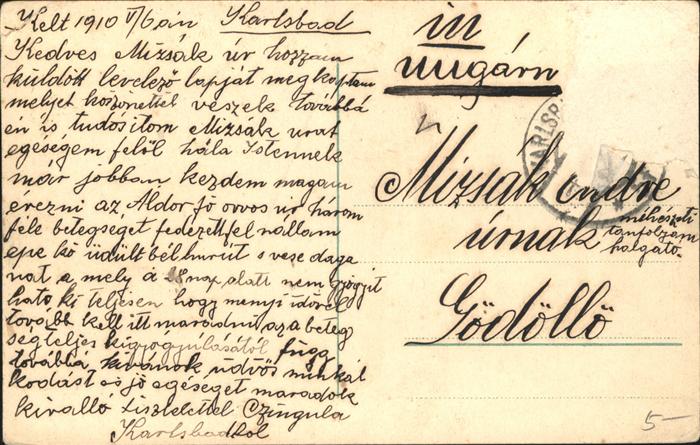 Kelt 1910 V/6 án Karlsbad
Kedves Mizsák úr hozzam
küldött levelező lapját megkaptam
melyet koszonettel veszek továbbá
én is tudósitom Mizsák urat
egeségem felől hála Istennek
már jobban kezdem magam
erezni az Áldor jó orvos úr három
féle betegséget fedezett fel nallam
epe kő üdült bélhurút s vese daga
nat a mely a 28 nap alatt nem gyógyit
ható ki teljesen hogy menyi időre
tovább kell itt maradni az a beteg
ség teljes kigyógyulásától függ
továbbá kivánok üdvös munkál
kodást es jó egeséget maradok
kiválló tisztelettel Czingula
Karlsbadból
in
ungárn
KARLSB
Mizsák endre
úrnak méhészeti
tanfolyam
halgató
Gödöllő
5-